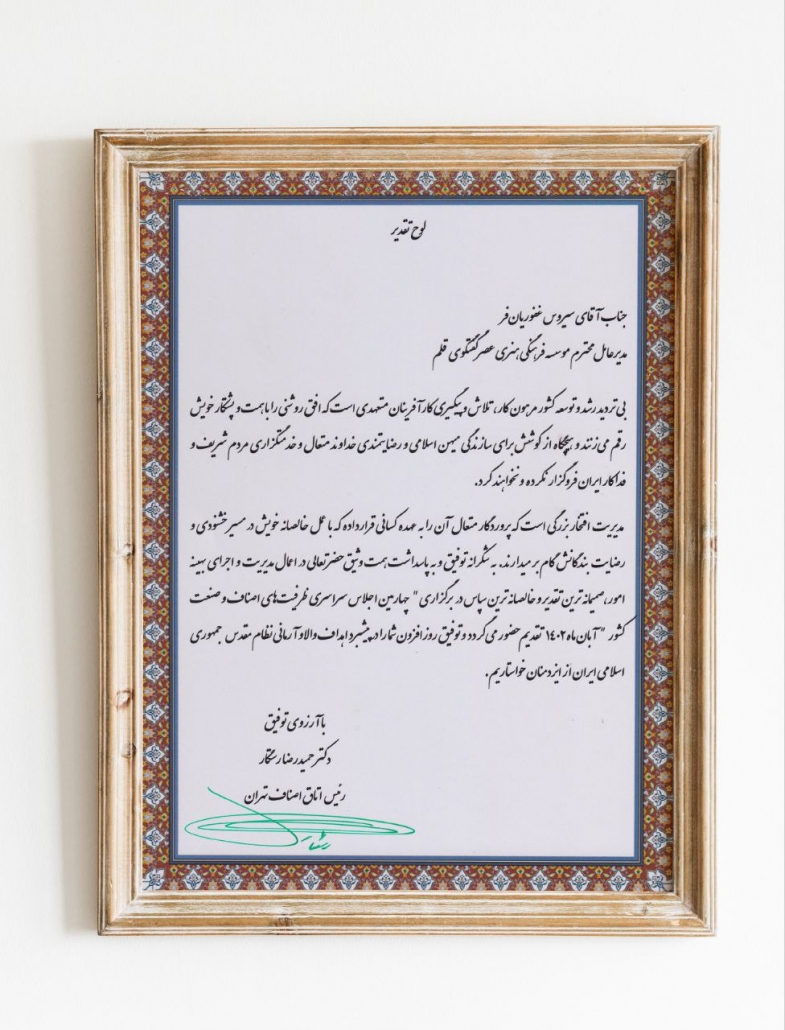 لوح تقدیر
جناب آقای سیروس غفوریان فر
مدیرعامل محترم موسسه فرهنگی هنری عصر گفتگوی قلم
بی تردید رشد و توسعه کشور مرهون کار، تلاش و پیگیری کارآفرینان متعهدی است که افق روشنی را با همت و پشتکار خویش
رقم می زنند و هیچگاه از کوشش برای سازندگی میهن اسلامی و رضایتمندی خداوند متعال و خدمتگزاری مردم شریف و
فداکار ایران فروگزار نکرده و نخواهند کرد.
مدیریت افتخار بزرگی است که پروردگار متعال آن را به عهده کسانی قرار داده که با عمل خالصانه خویش در مسیر خشنودی و
رضایت بندگانش گام بر میدارند. به شکرانه توفیق و به پاسداشت همت وثیق حضرتعالی در اعمال مدیریت و اجرای بهینه
امور، صمیمانه ترین تقدیر و خالصانه ترین سپاس در برگزاری " چهارمین اجلاس سراسری ظرفیت های اصناف و صنعت
کشور " آبان ماه ۱۴۰۲ تقدیم حضور می گردد و توفیق روز افزون شما را در پیشبرد اهداف والا و آرمانی نظام مقدس جمهوری
اسلامی ایران از ایزد منان خواستاریم.
با آرزوی توفیق
دکتر حمیدرضا رستگار
رئیس اتاق اصناف تهران